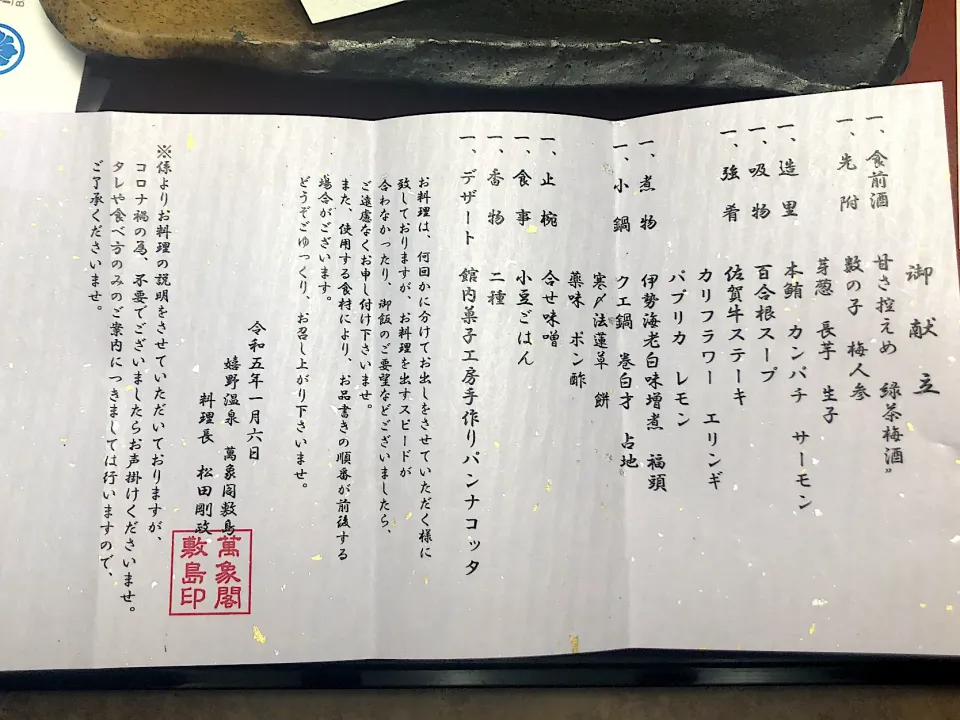 御献立
一、食前酒 甘さ控えめ 緑茶梅酒”
一、先附 数の子 梅人参
芽葱 長芋 生子
一、造里 本鮪 カンパチ サーモン
一、吸物 百合根スープ
一、強肴 佐賀牛ステーキ
カリフラワー エリンギ
パプリカ レモン
一、煮物 伊勢海老白味噌煮 福頭
一、小鍋 クエ鍋 巻白才 占地
寒〆法蓮草 餅
薬味 ポン酢
一、止椀 合せ味噌
一、食事 小豆ごはん
一、香物 二種
一、デザート 館内菓子工房手作りパンナコッタ
お料理は、何回かに分けてお出しをさせていただく様に
致しておりますが、お料理を出すスピードが
合わなかったり、御飯のご要望などございましたら、
ご遠慮なくお申し付け下さいませ。
また、使用する食材により、お品書きの順番が前後する
場合がございます。
どうぞごゆっくり、お召し上がり下さいませ。
令和五年一月六日
嬉野温泉 萬象閣敷島
料理長 松田剛政
萬象閣
敷島印
※係よりお料理の説明をさせていただいておりますが、
コロナ禍の為、不要でございましたらお声掛けくださいませ。
タレや食べ方のみのご案内につきましては行いますので、
ご了承くださいませ。